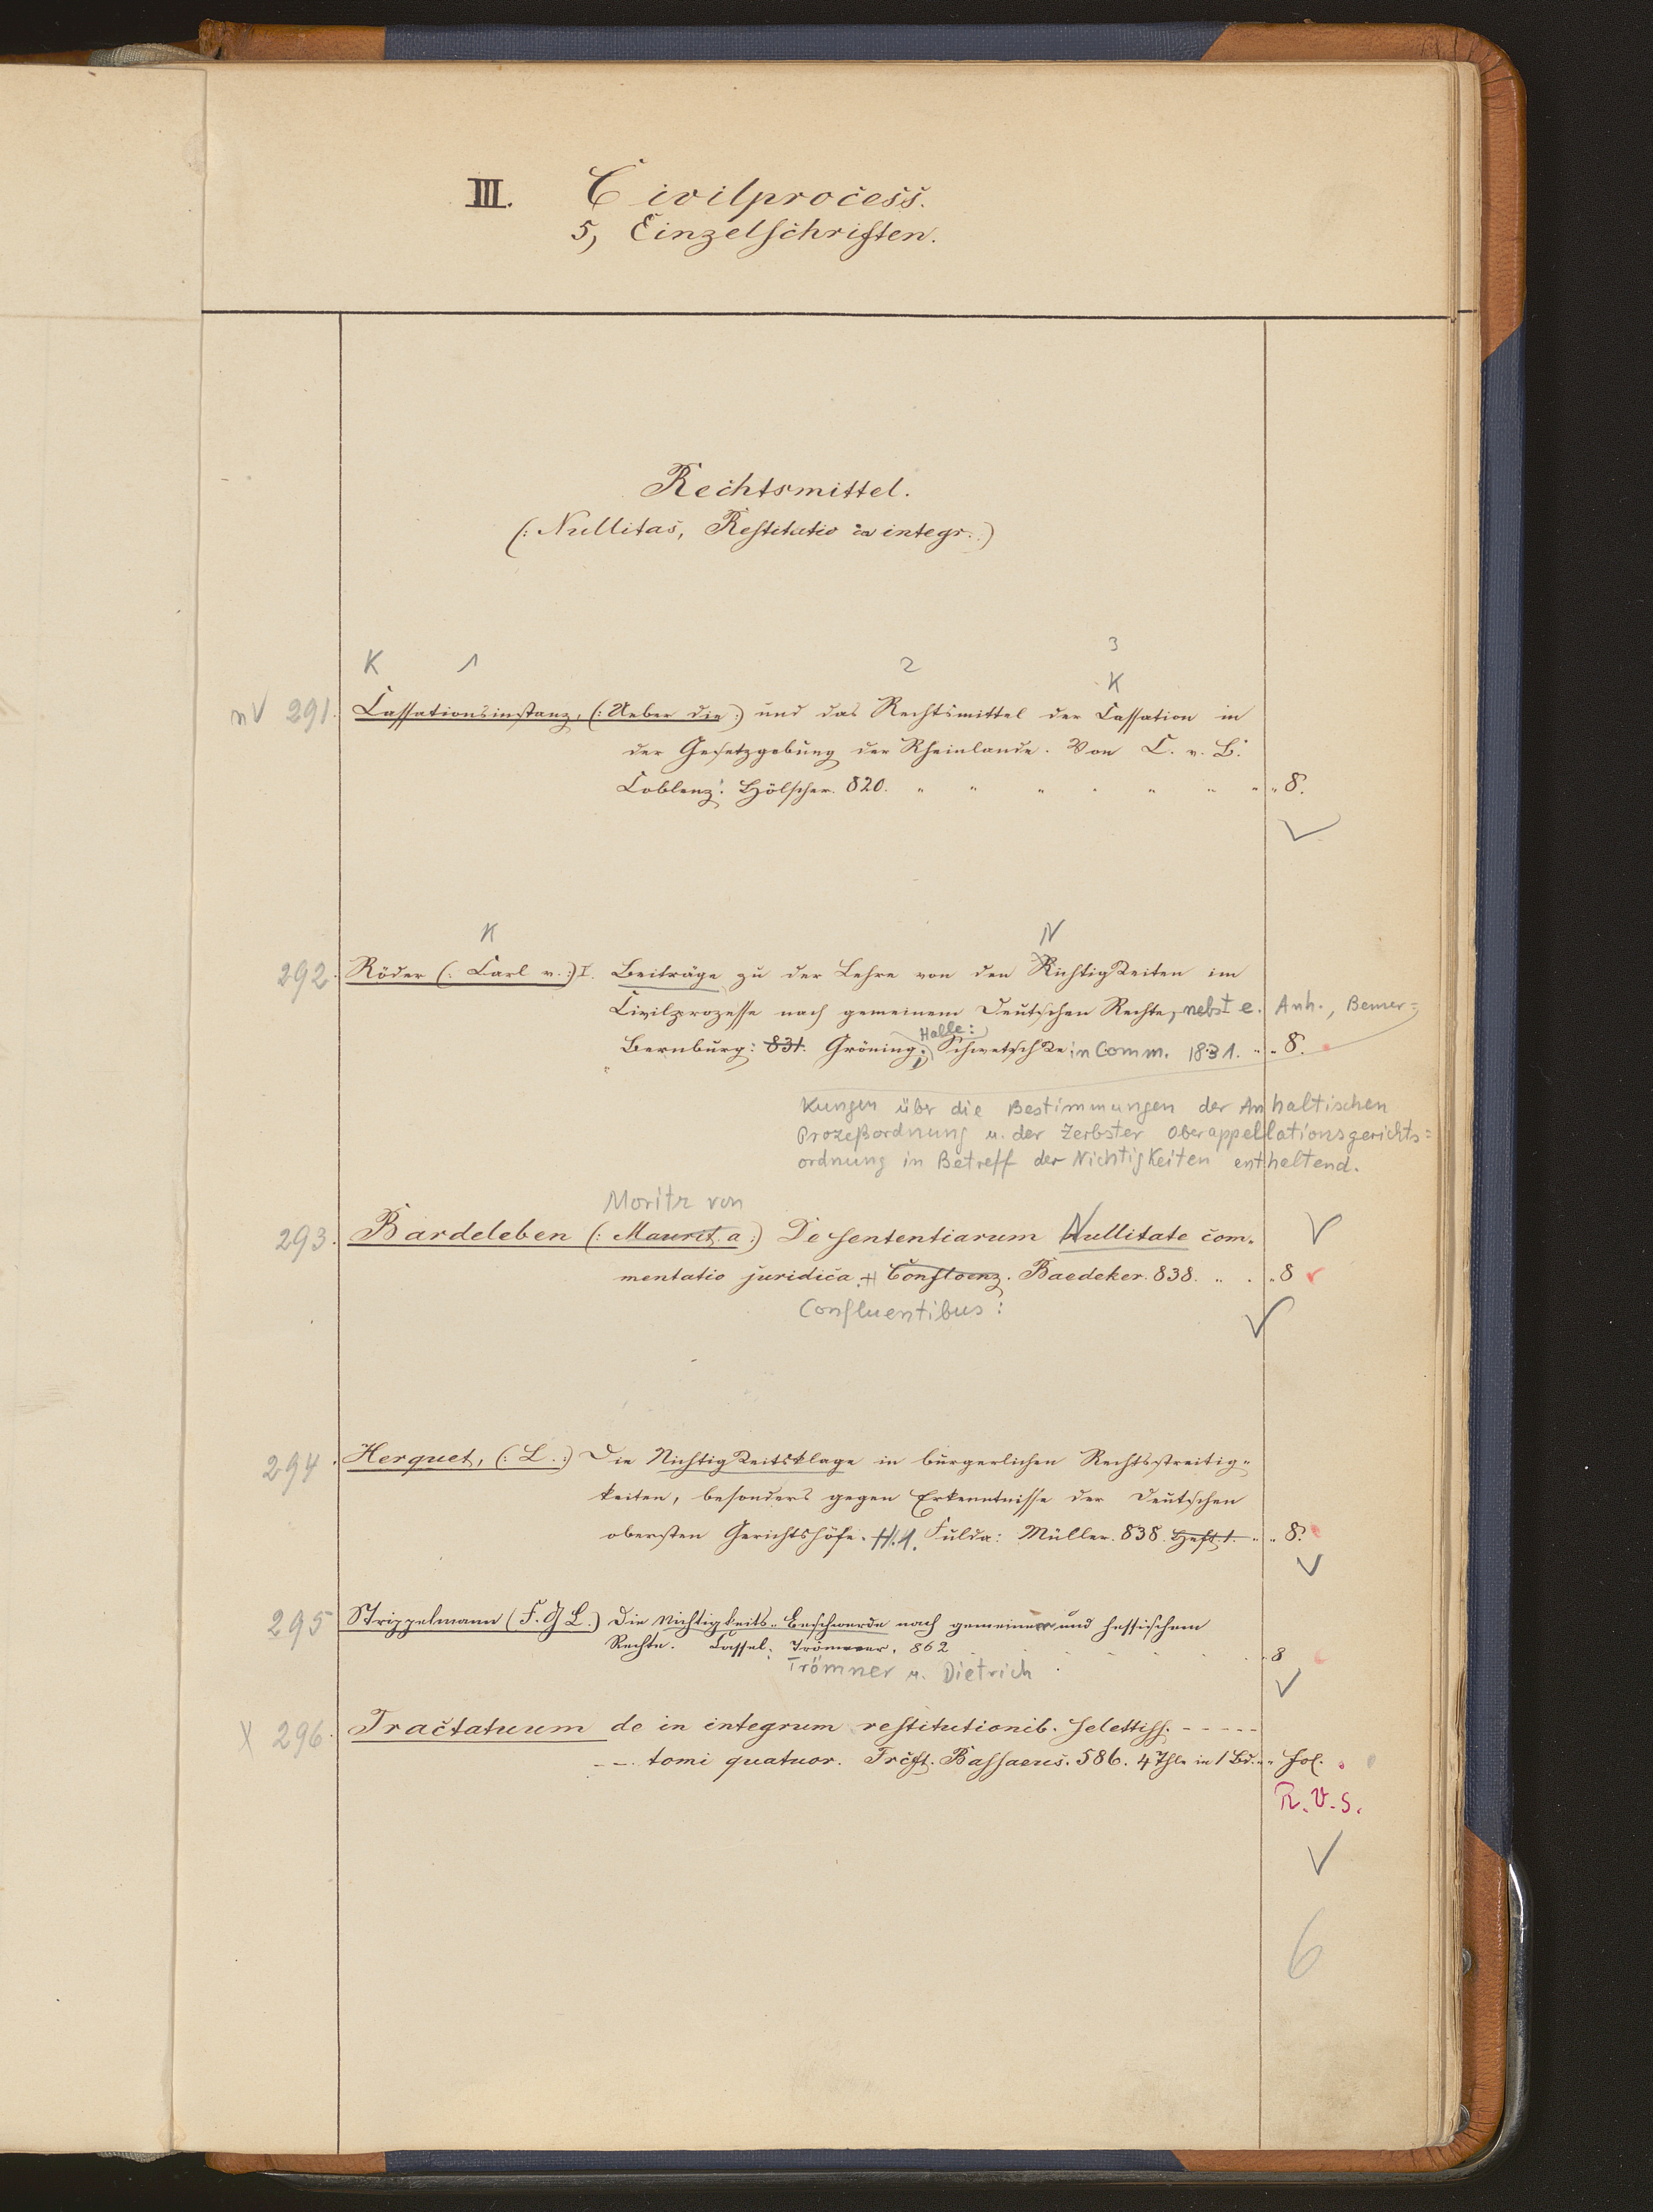 III. Civilprocess.
5, Einzelschriften.
Rechtsmittel.
(: Nullitas, Restitutio in integr. :)
K 1 2 3
K
nV 291. Cassationsinstanz, (: Ueber die :) und das Rechtsmittel der Cassation in
der Gesetzgebung der Rheinlande. Von C. v. B.
Coblenz: Hölscher. 820. " " " " " " " 8.
K N
292. Röder (: Carl v. :) I. Beiträge zu der Lehre von den Nichtigkeiten im
Civilprozesse nach gemeinem Deutschen Rechte, nebst e. Anh., Bemer=
Halle:
Bernburg: 831. Gröning; Schwetschke in Comm. 1831. " " 8.
kungen über die Bestimmungen der Anhaltischen
Prozeßordnung u. der Zerbster Oberappellationsgerichts=
ordnung in Betreff der Nichtigkeiten enthaltend.
Moritz von
293. Bardeleben (: Maurit. a :) De sententiarum Nullitate com-
mentatio juridica. Confloenz. Baedeker. 838. " " " 8
Confluentibus:
294. Herquet, (: L. :) Die Nichtigkeitsklage in bürgerlichen Rechtsstreitig-
keiten, besonders gegen Erkenntnisse der Deutschen
obersten Gerichtshöfe. H. 1. Fulda: Müller. 838. Heft 1. " " 8.
295 Strippelmann (F. G L.) Die Nichtigkeits-Beschwerde nach gemeinem und hessischem
Rechte. Cassel: Trömner, 862 8
Trömner u. Dietrich
X 296. Tractatuum de in integrum restitutionib. selettiss. - - - - -
- - tomi quatuor. Frcft. Bassaeus. 586. 4 Thle in 1 Bd. " " fol.
R. V. S.
6